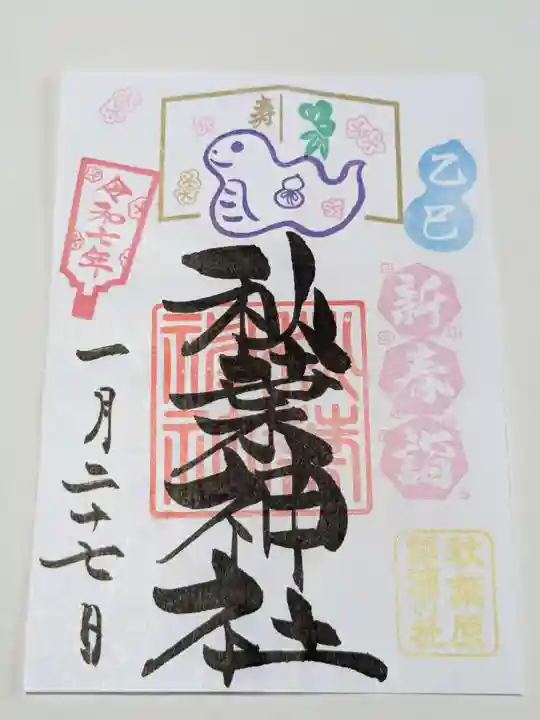 寿
乙巳
新春詣
秋葉神社
令和七年
一月二十七日
秋葉原